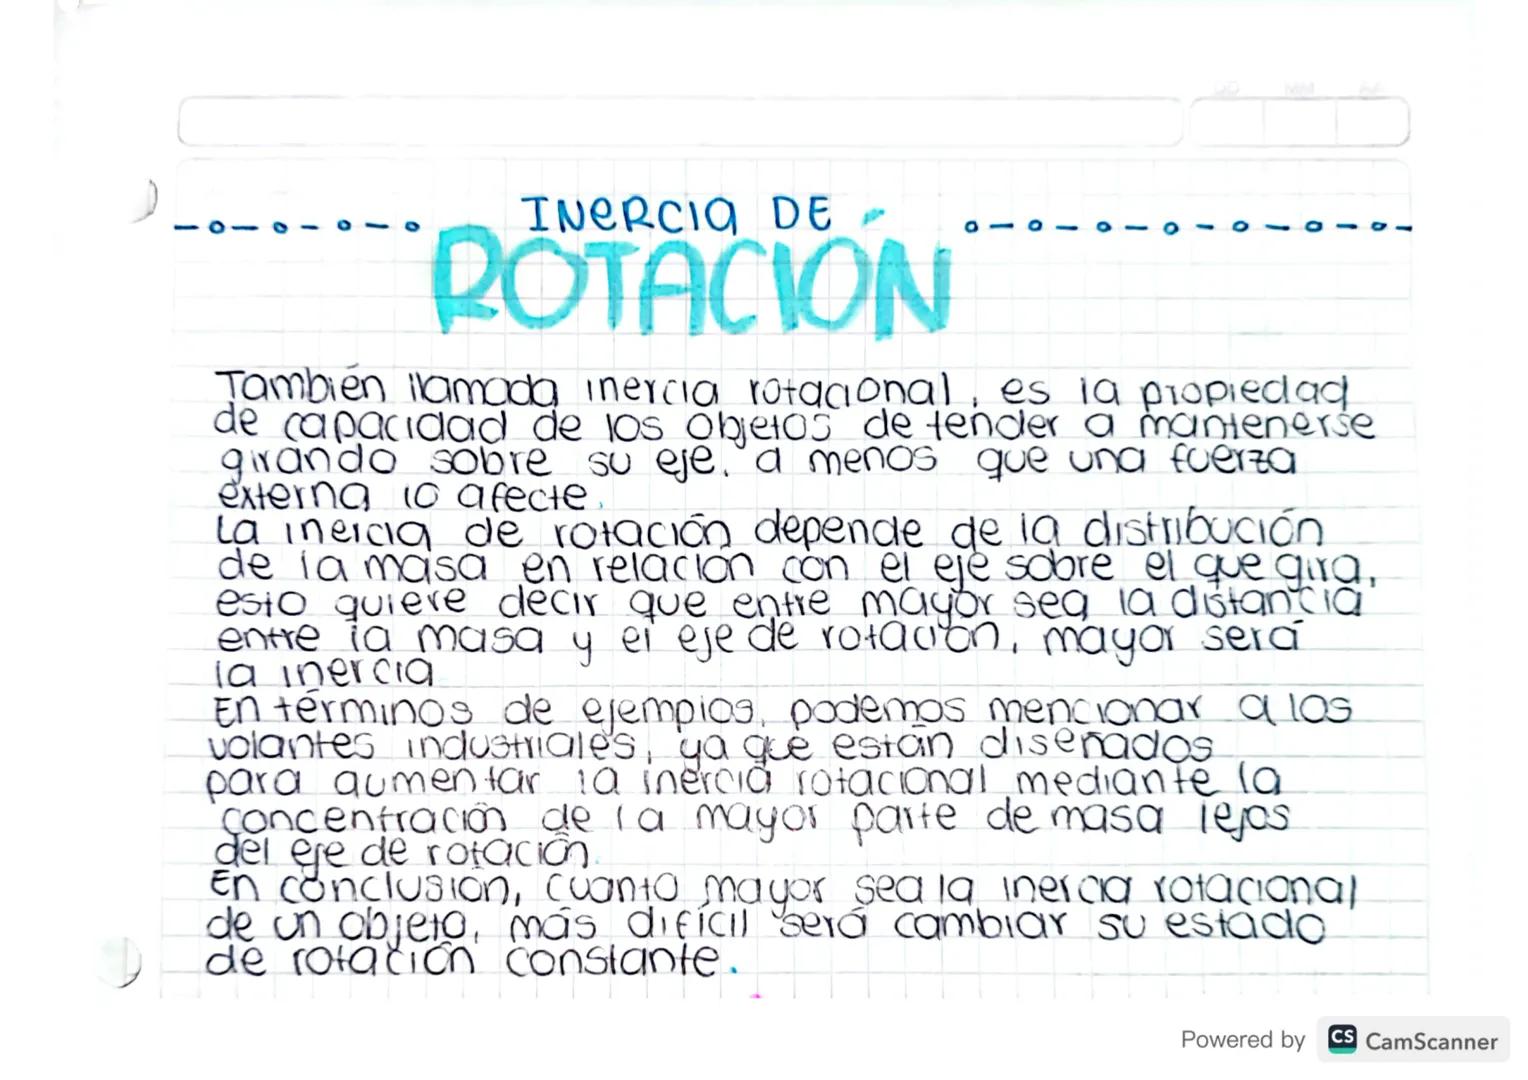 DD MM AA
INERCIA DE
ROTACIÓN
También llamada inercia rotacional, es la propiedad
de capacidad de los objetos de tender a mantenerse
girando sobre su eje, a menos que una fuerza
externa lo afecte.
La inercia de rotación depende de la distribución
de la masa en relación con el eje sobre el que gira,
esto quiere decir que entre mayor sea la distancia
entre la masa y el eje de rotación, mayor será
la inercia
En términos de ejemplos, podemos mencionar a los
volantes industriales, ya que están diseñados
para aumentar la inercia rotacional mediante la
concentración de la mayor parte de masa lejos
del eje de rotación.
En conclusión, cuanto mayor sea la inercia rotacional
de un objeto, más difícil será cambiar su estado
de rotación constante.
Powered by CS CamScanner